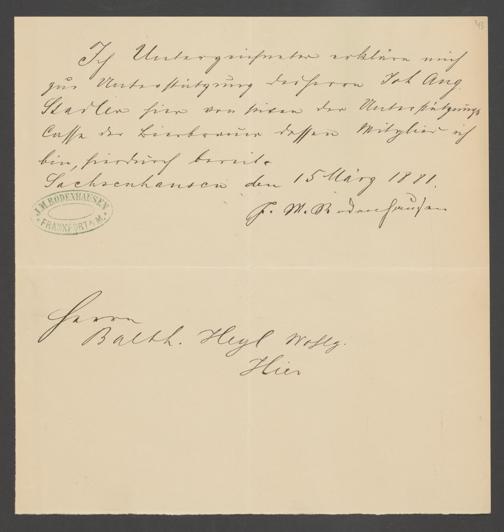 43
Ich Unterzeichneter erkläre mich
zur Unterstützung des Herrn Joh. Aug.
Stadler hier von Seiten der Unterstützungs
Casse der Bierbrauer dessen Mitglied ich
bin, hierdurch bereit.
Sachsenhausen den 15 März 1881.
J. M. Rodenhausen
J. M. RODENHAUSEN
FRANKFURT A. M.
Herrn
Balth. Heyl Wohlg.
Hier